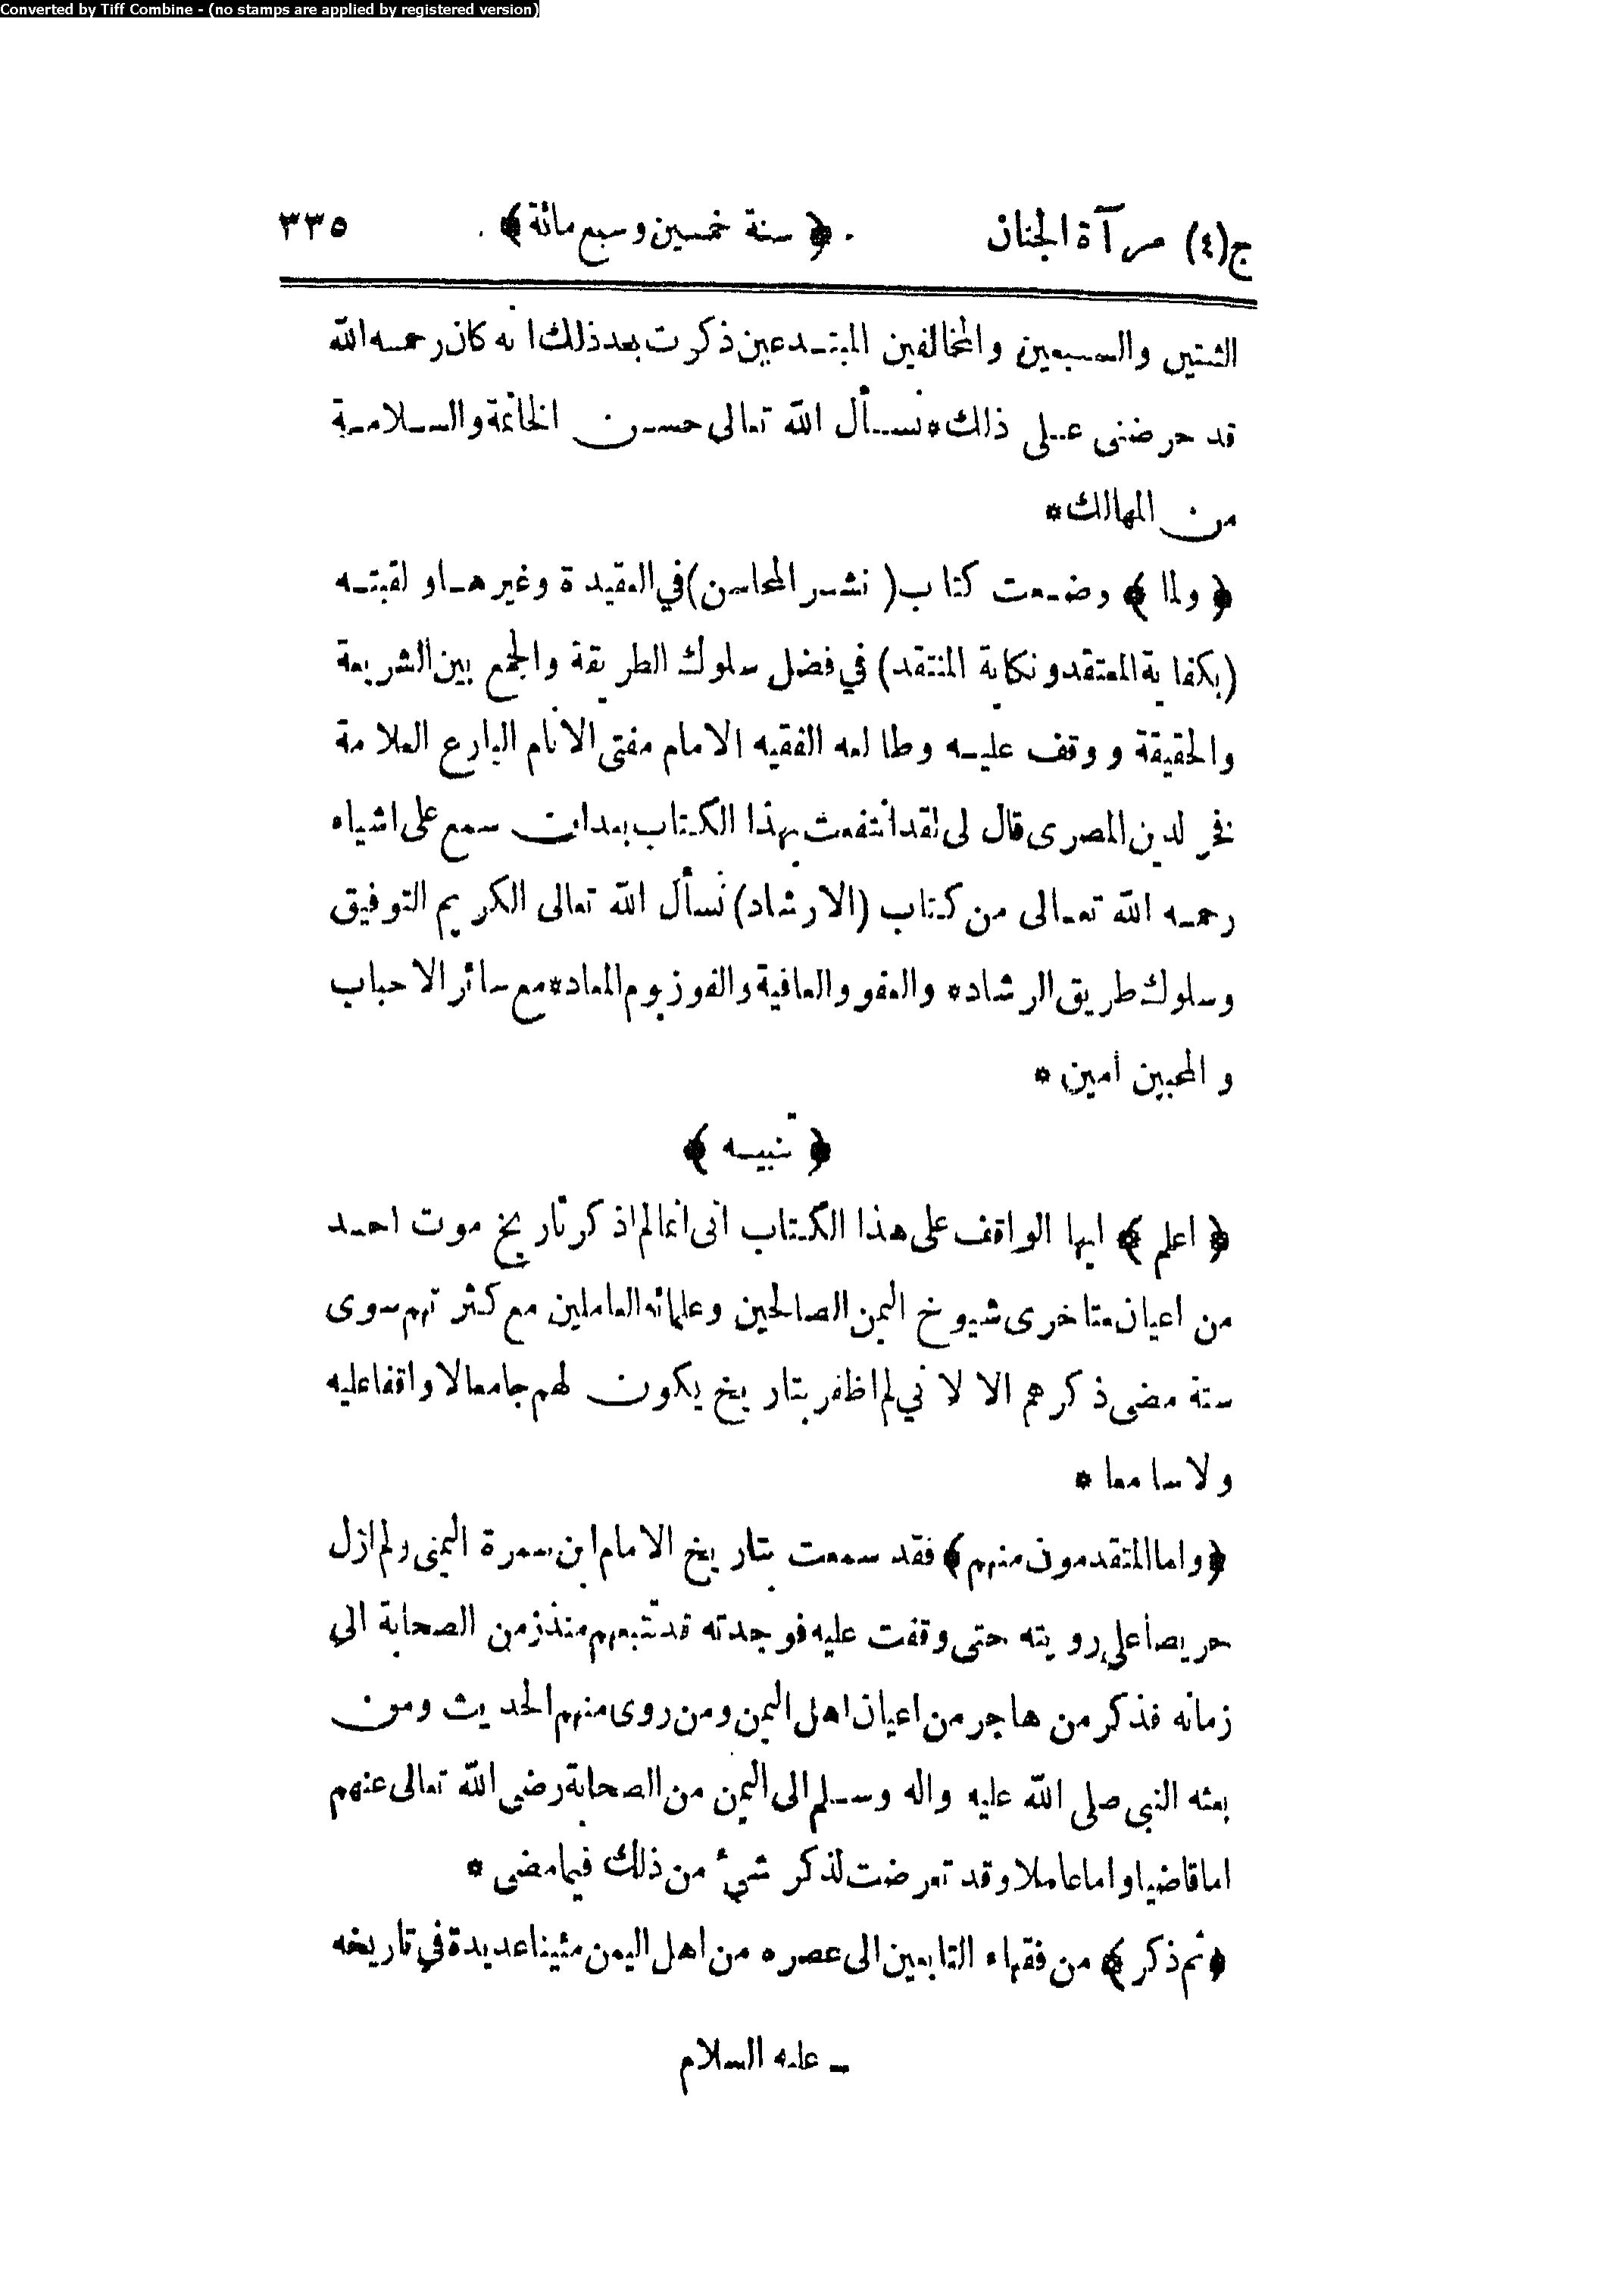 Converted by Tiff Combine - (no stamps are applied by registered version)
ج(٤) مرآة الجنان ﴿ سنة خمسين وسبع مائة ﴾ ٣٣٥
الثنتين والسبعين والمخالفين المبتدعين ذكرت بعد ذلك انه كان رحمه الله
قد حرضنى على ذلك * نسأل الله تعالى حسن الخاتمة والسلامة
من المهالك *
﴿ ولما ﴾ وضعت كتاب ( نشر المحاسن) في العقيدة وغيرها و لقبته
(بكفاية المعتقد و نكاية المنتقد) في فضل سلوك الطريقة والجمع بين الشريعة
والحقيقة و وقف عليه وطالعه الفقيه الامام مفتى الانام البارع العلامة
فخر لدين المصرى قال لى لقد انتفعت بهذا الكتاب بعد ان سمع على اشياء
رحمه الله تعالى من كتاب (الارشاد) نسأل الله تعالى الكريم التوفيق
وسلوك طريق الرشاد * والعفو والعافية والفوز يوم المعاد * مع سائر الاحباب
و المحبين امين *
﴿ تنبيه ﴾
﴿ اعلم ﴾ ايها الواقف على هذا الكتاب انى انما لم اذكر تاريخ موت احمد
من اعيان متاخرى شيوخ اليمن الصالحين وعلمائه العاملين مع كثرتهم سوى
ستة مضى ذكرهم الا لا ني لم اظفر بتاريخ يكون لهم جامعا لا واقفا عليه
ولا سامعا *
﴿ واما المتقدمون منهم ﴾ فقد سمعت بتاريخ الامام ابن سمرة اليمنى ولم ازل
حريصا على رويته حتى وقفت عليه فوجدته قد تتبعهم منذ زمن الصحابة الى
زمانه فذكر من هاجر من اعيان اهل اليمن ومن روى منهم الحديث ومن
بعثه النبى صلى الله عليه واله وسلم الى اليمن من الصحابة رضى الله تعالى عنهم
اما قاضيا و اما عاملا و قد تعرضت لذكر شيء من ذلك فيما مضى *
﴿ ثم ذكر ﴾ من فقهاء التابعين الى عصره من اهل اليمن مئينا عديدة في تاريخه
ـ عليه السلام